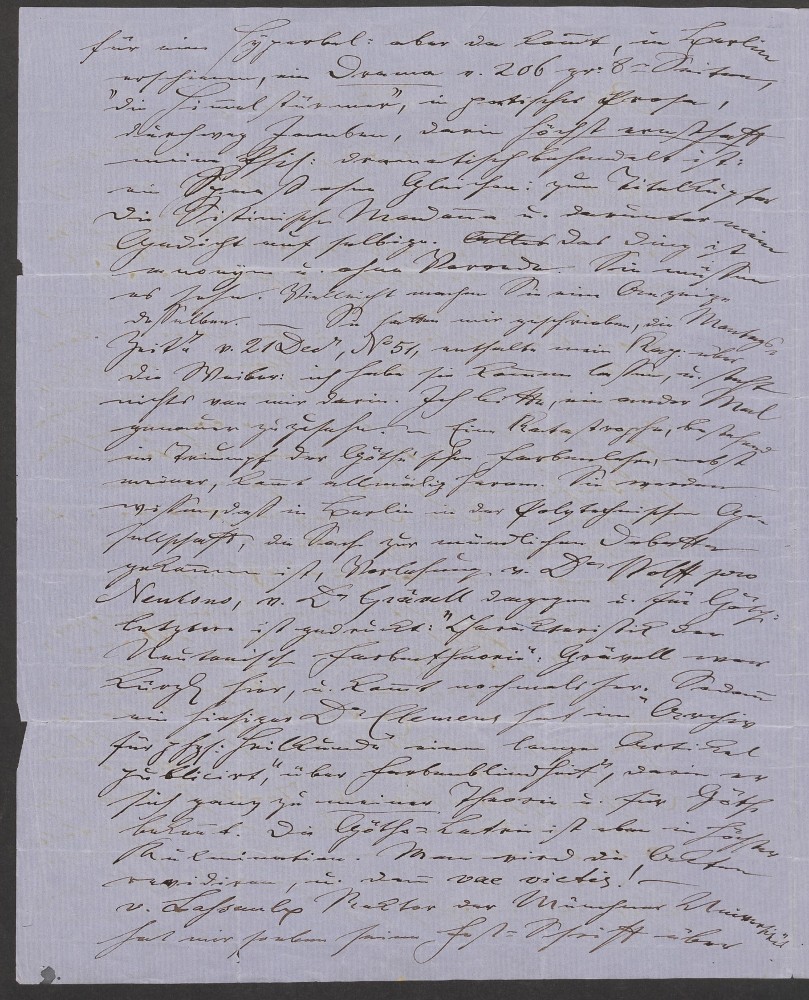 für eine Hyperbel: aber da kom̅t, in Berlin
erschienen, ein Drama v. 206 gr: 8= Seiten,
"die Himmelstürmer", in poetischer Prosa,
durchweg Jamben, darin höchst ernsthaft
meine Phil: dramatisch behandelt ist:
ein Spaaß ohne Gleichen: zum Titelkupfer
die Sistinische Madonna u. darunter mein
Gedicht auf selbige. Alles das Ding ist
anonym u. ohne Vorrede. Sie müssen
es sehn. Vielleicht machen Sie eine Anzeige
desselben. — Sie hatten mir geschrieben, die Montags-
Zeit^g v. 21 Dec^r, N° 51, enthalte mein Kap: über
die Weiber: ich habe sie kommen lassen, u. steht
nichts von mir darin. Ich bitte, ein ander Mal
genauer zuzusehn. — Eine Katastrophe, bestehend
im Triumph der Göthe'schen Farbenlehre, nebst
meiner, kom̅t allmälig heran. Sie werden
wissen, daß in Berlin in der Polytechnischen Ge-
sellschaft, die Sache zur mündlichen Debatte
gekommen ist, Vorlesung v. D^r Wolff pro
Neutono, v. D^r Grävell dagegen u. für Göthe:
letztere ist gedruckt: "Charakteristik der
Neutonisch Farbentheorie". Grävell war
kürzl hier, u. kom̅t nochmals her. Sodan̅
ein hiesiger D^r Clemens hat im "Archiv
für phys: Heilkunde" einen langen Artikel
publicirt, "über Farbenblindheit", darin er
sich ganz zu meiner Theorie u. für Göthe
bekennt. Die Göthe= ist eben in höchster
Kulmination. Man wird die Akten
revidiren, u. dan̅ vae victis! —
v. Lasaulx Rektor der Münchner Universität
hat mir soeben seine Fest=Schrift über